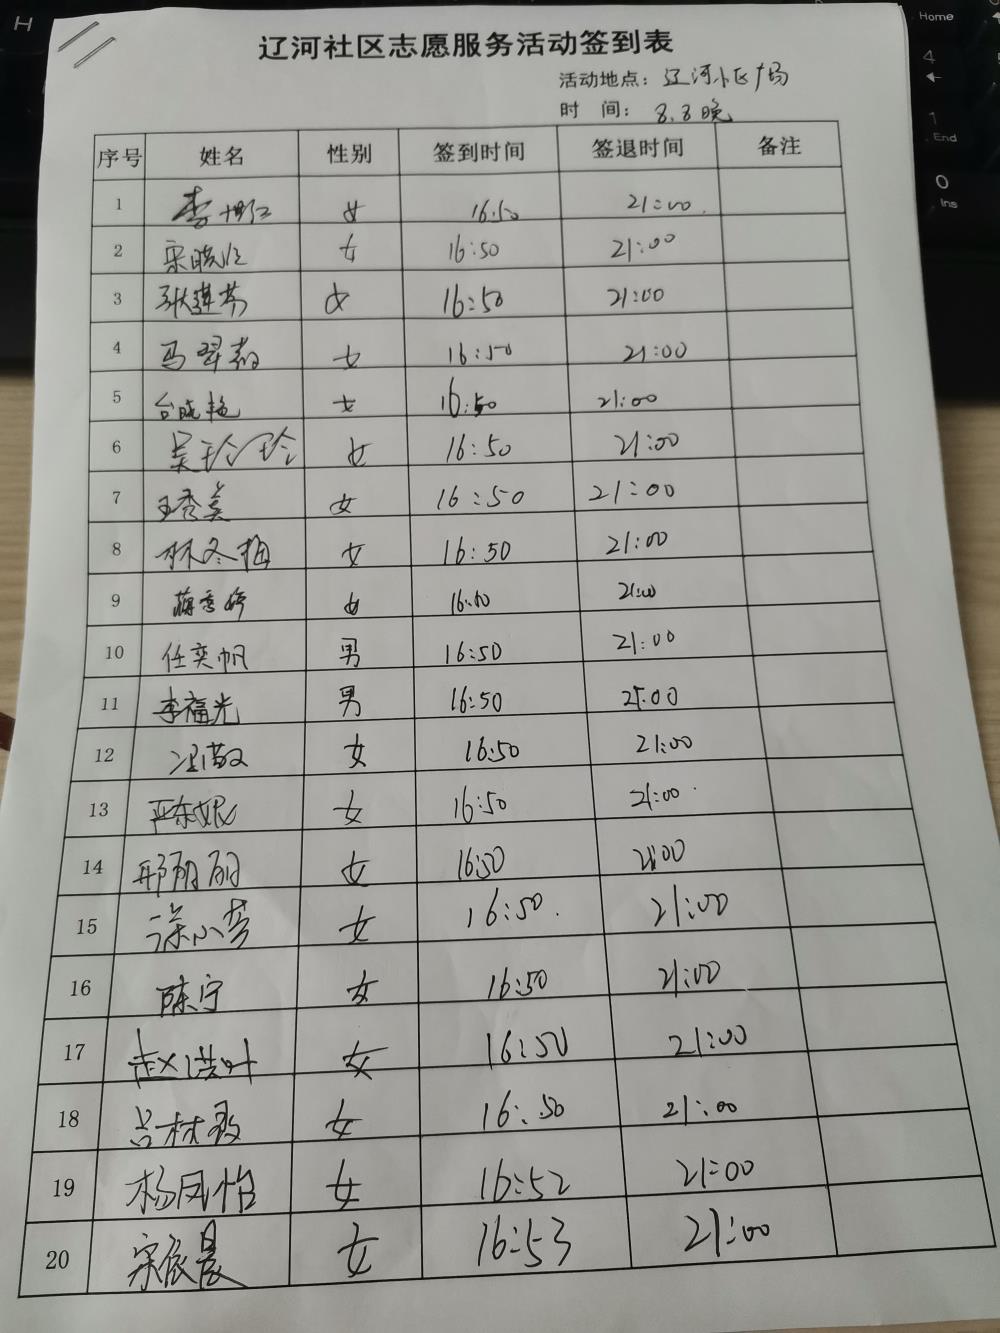 辽河社区志愿服务活动签到表
活动地点：辽河小区广场
时 间：8.8晚
序号 姓名 性别 签到时间 签退时间 备注
1 李 女 16:50 21:00
2 宋晓 女 16:50 21:00
3 女 16:50 21:00
4 马翠 女 16:50 21:00
5 台晓艳 女 16:50 21:00
6 吴玲玲 女 16:50 21:00
7 王秀英 女 16:50 21:00
8 林冬梅 女 16:50 21:00
9 女 16:50 21:00
10 任奕帆 男 16:50 21:00
11 李福光 男 16:50 21:00
12 女 16:50 21:00
13 严东妮 女 16:50 21:00
14 邢丽丽 女 16:50 21:00
15 徐小芳 女 16:50 21:00
16 陈宁 女 16:50 21:00
17 赵洪叶 女 16:50 21:00
18 吕林 女 16:50 21:00
19 杨凤怡 女 16:52 21:00
20 宋依晨 女 16:53 21:00
H
Home
4
1
End
0
Ins